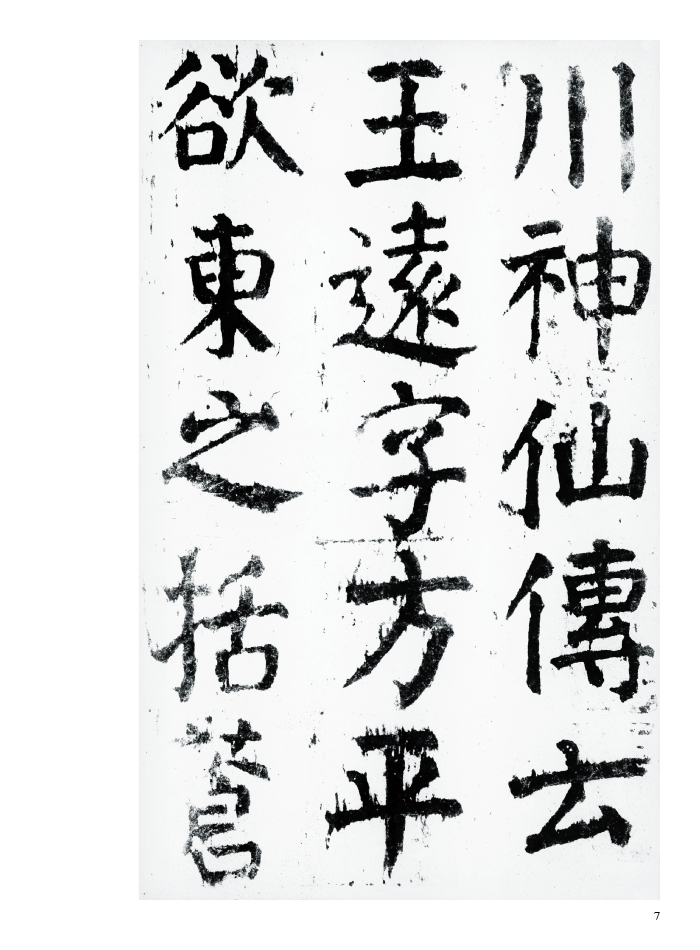 川神仙傳云
王遠字方平
欲東之括蒼
7